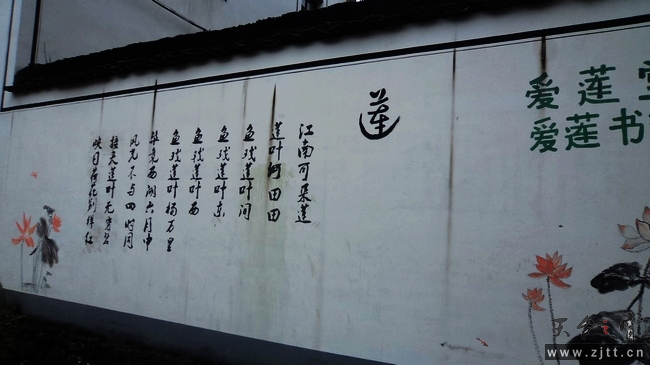 爱莲
爱莲书
莲
江南可采莲
莲叶何田田
鱼戏莲叶间
鱼戏莲叶东
鱼戏莲叶西
鱼戏莲叶杨万里
毕竟西湖六月中
风光不与四时同
接天莲叶无穷碧
映日荷花别样红
www.zjtt.cn